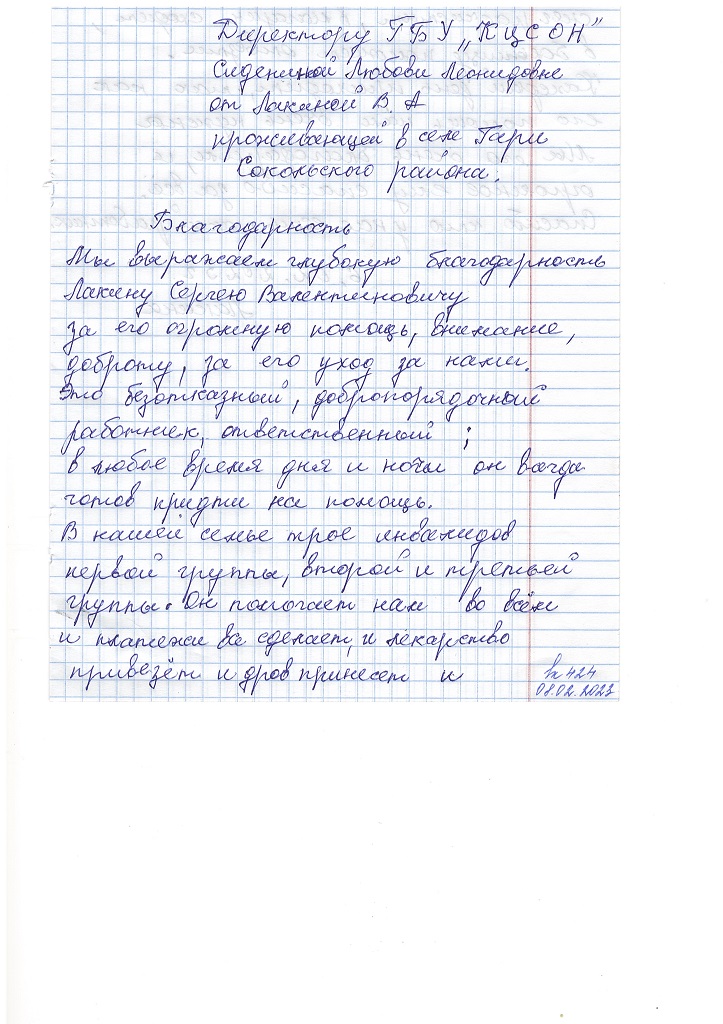 Директору ГБУ „КЦСОН"
Сидениной Любови Леонидовне
от Лакиной В. А
проживающей в селе Гари
Сокольского района.
Благодарность
Мы выражаем глубокую благодарность
Лакину Сергею Валентиновичу
за его огромную помощь, внимание,
доброту, за его уход за нами.
Это безотказный, добропорядочный
работник, ответственный ;
в любое время дня и ночи он всегда
готов придти на помощь.
В нашей семье трое инвалидов
первой группы, второй и третьей
группы. Он помогает нам во всём
и платежи все сделает, и лекарство
привезёт и дров принесет и
вх 424
08.02.2023